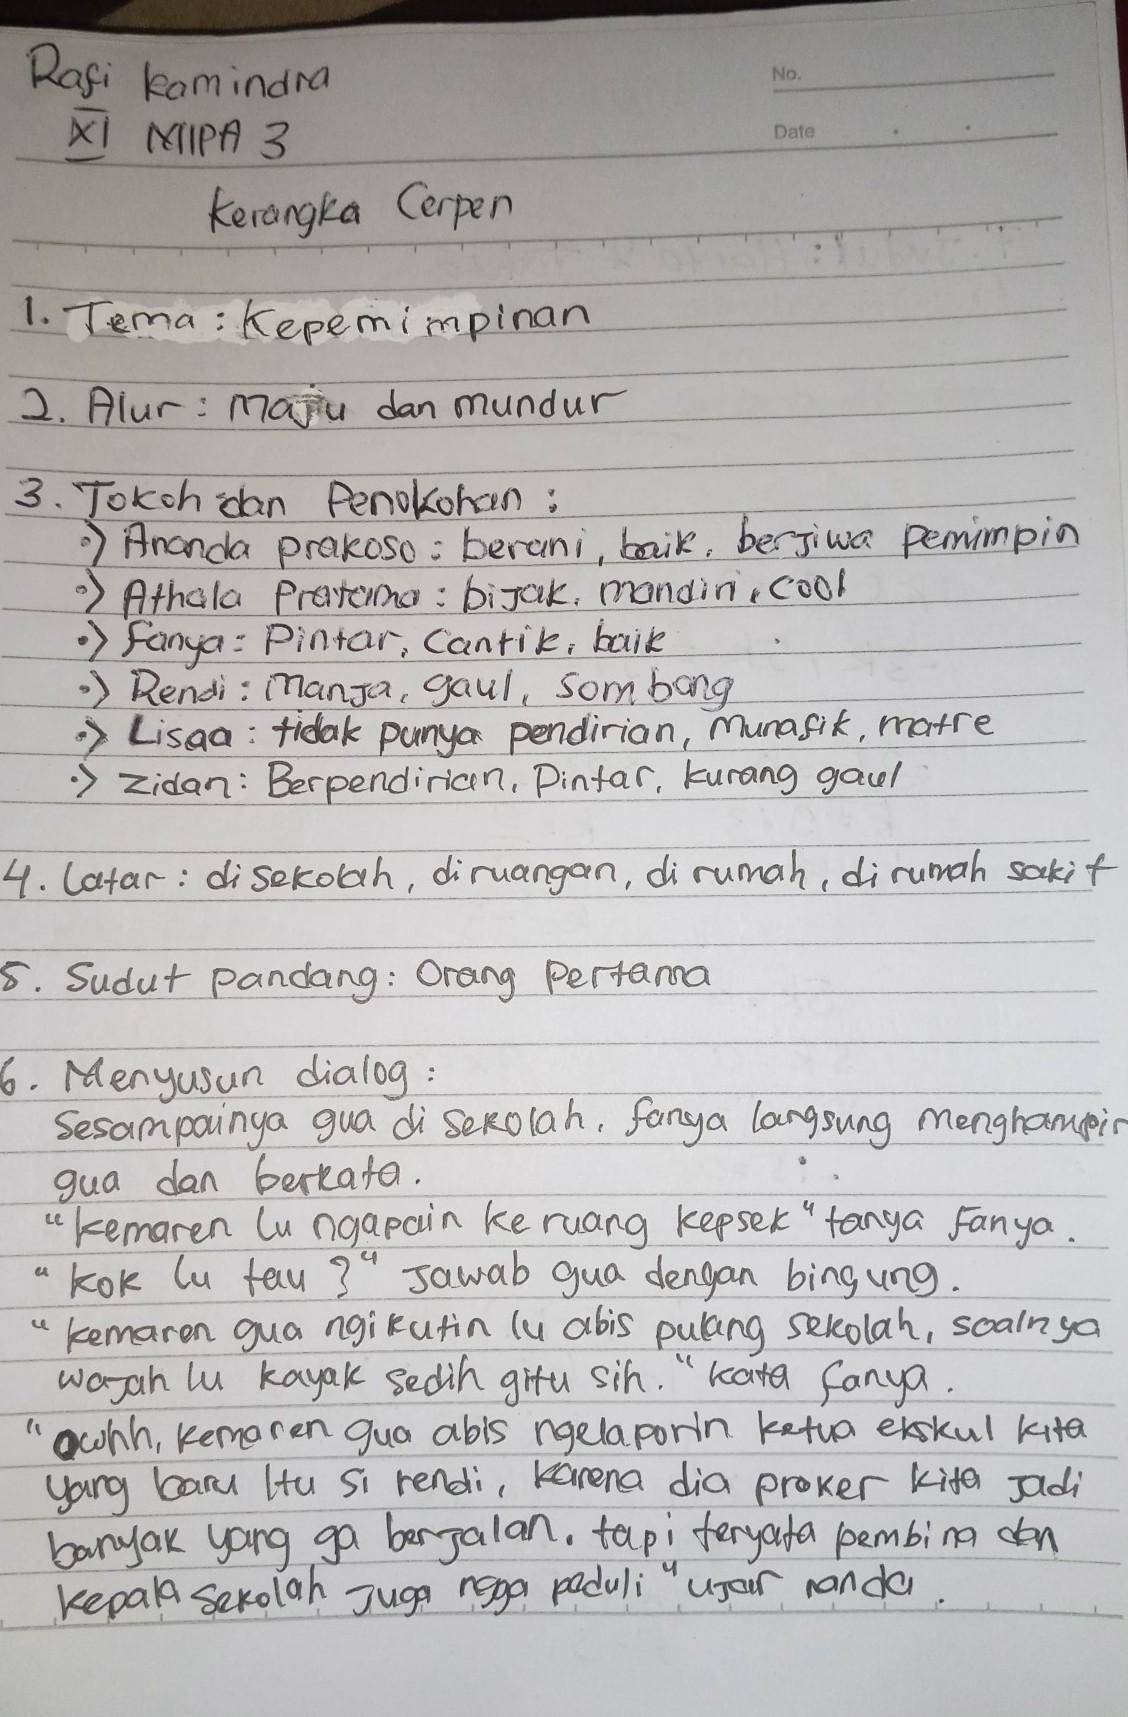 Rafi Kamindra
No.
XI MIPA 3
Date
Kerangka Cerpen
1. Tema : Kepemimpinan
2. Alur : maju dan mundur
3. Tokoh dan Penokohan :
•> Ananda prakoso : berani, baik, berjiwa Pemimpin
•> Athala Pratama : bijak, mandiri, cool
•> Fanya : Pintar, Cantik, baik
•> Rendi : Manja, gaul, Sombong
•> Lisaa : tidak punya pendirian, Munafik, matre
•> Zidan : Berpendirian, Pintar, kurang gaul
4. Latar : di sekolah, diruangan, di rumah, di rumah sakit
5. Sudut pandang : Orang Pertama
6. Menyusun dialog :
Sesampainya gua di Sekolah, fanya langsung menghampir
gua dan berkata.
"kemaren lu ngapain ke ruang kepsek" tanya Fanya.
"kok lu tau ?" Jawab gua dengan bingung.
"kemaren gua ngikutin lu abis pulang sekolah, soalnya
wajah lu kayak sedih gitu sih." kata fanya.
"owhh, kemaren gua abis ngelaporin ketua ekskul kita
yang baru itu si rendi, karena dia proker kita jadi
banyak yang ga berjalan. tapi teryata pembina dan
kepala sekolah juga ngga peduli" ujar nanda.